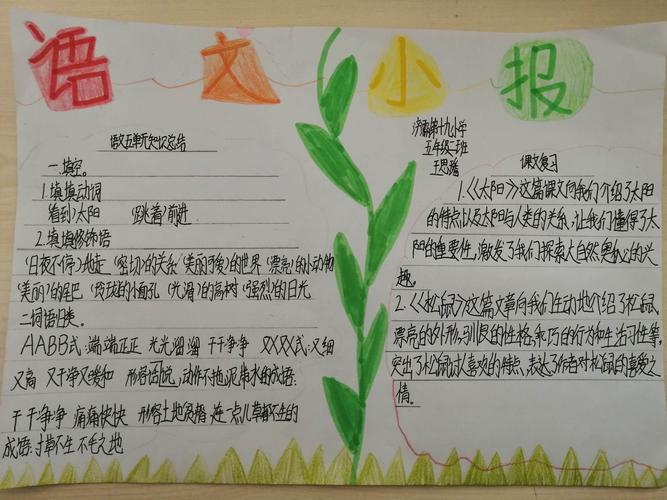 语文小报
语文五单元知识总结
一.填空。
1.填填动词
(看到)太阳 (跳着)前进
2.填填修饰语
(日夜不停)地走 (密切)的关系 (美丽可爱)的世界 (漂亮)的小动物
(美丽)的尾巴 (玲珑)的小面孔 (光滑)的高树 (强烈)的日光
二.词语归类。
AABB式:端端正正 光光溜溜 干干净净 又X又X式:又细
又高 又干净又暖和 形容说话,动作不拖泥带水的成语:
干干净净 痛痛快快 形容土地贫瘠,连一点儿草都不生的
成语:寸草不生 不毛之地
第十九小学
五年级二班
课文复习
1.《太阳》这篇课文向我们介绍了太阳
的特点以及太阳与人类的关系,让我们懂得了太
阳的重要性,激发了我们探索大自然奥秘的兴
趣。
2.《松鼠》这篇文章向我们生动地介绍了松鼠
漂亮的外形,驯良的性格,乖巧的行为和生活习性等,
突出了松鼠讨人喜欢的特点,表达了作者对松鼠的喜爱之
情。